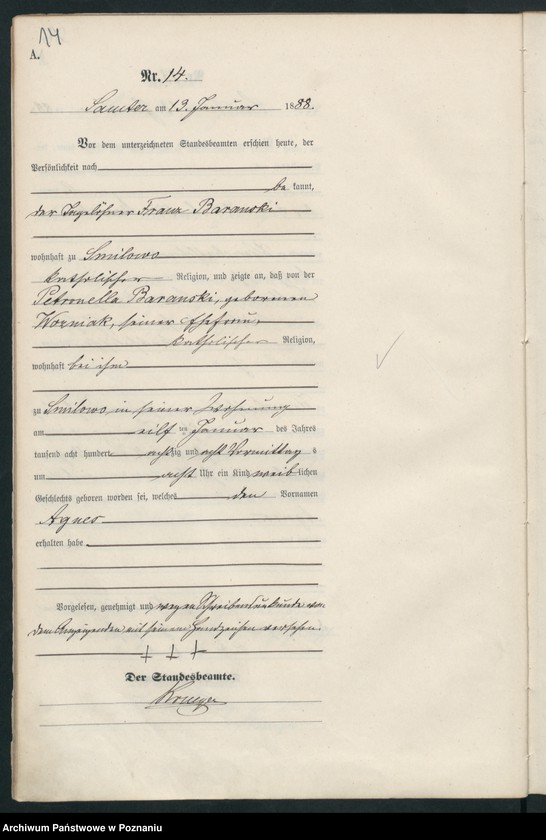 14
A.
Nr. 14.
Samter am 13. Januar 1888.
Vor dem unterzeichneten Standesbeamten erschien heute, der
Persönlichkeit nach
be kannt,
der Tagelöhner Franz Baranski
wohnhaft zu Smilowo
katholischer Religion, und zeigte an, daß von der
Petronella Baranski, geborenen
Wozniak, seiner Ehefrau,
katholischer Religion,
wohnhaft bei ihm
zu Smilowo in seiner Wohnung
am eilf ten Januar des Jahres
tausend acht hundert achtzig und acht Vormittag s
um acht Uhr ein Kind weib lichen
Geschlechts geboren worden sei, welches den Vornamen
Agnes
erhalten habe.
Vorgelesen, genehmigt und wegen Schreibensunkunde von
dem Anzeigenden mit seinem Handzeichen versehen.
+ + +
Der Standesbeamte.
Krueger
Archiwum Państwowe w Poznaniu